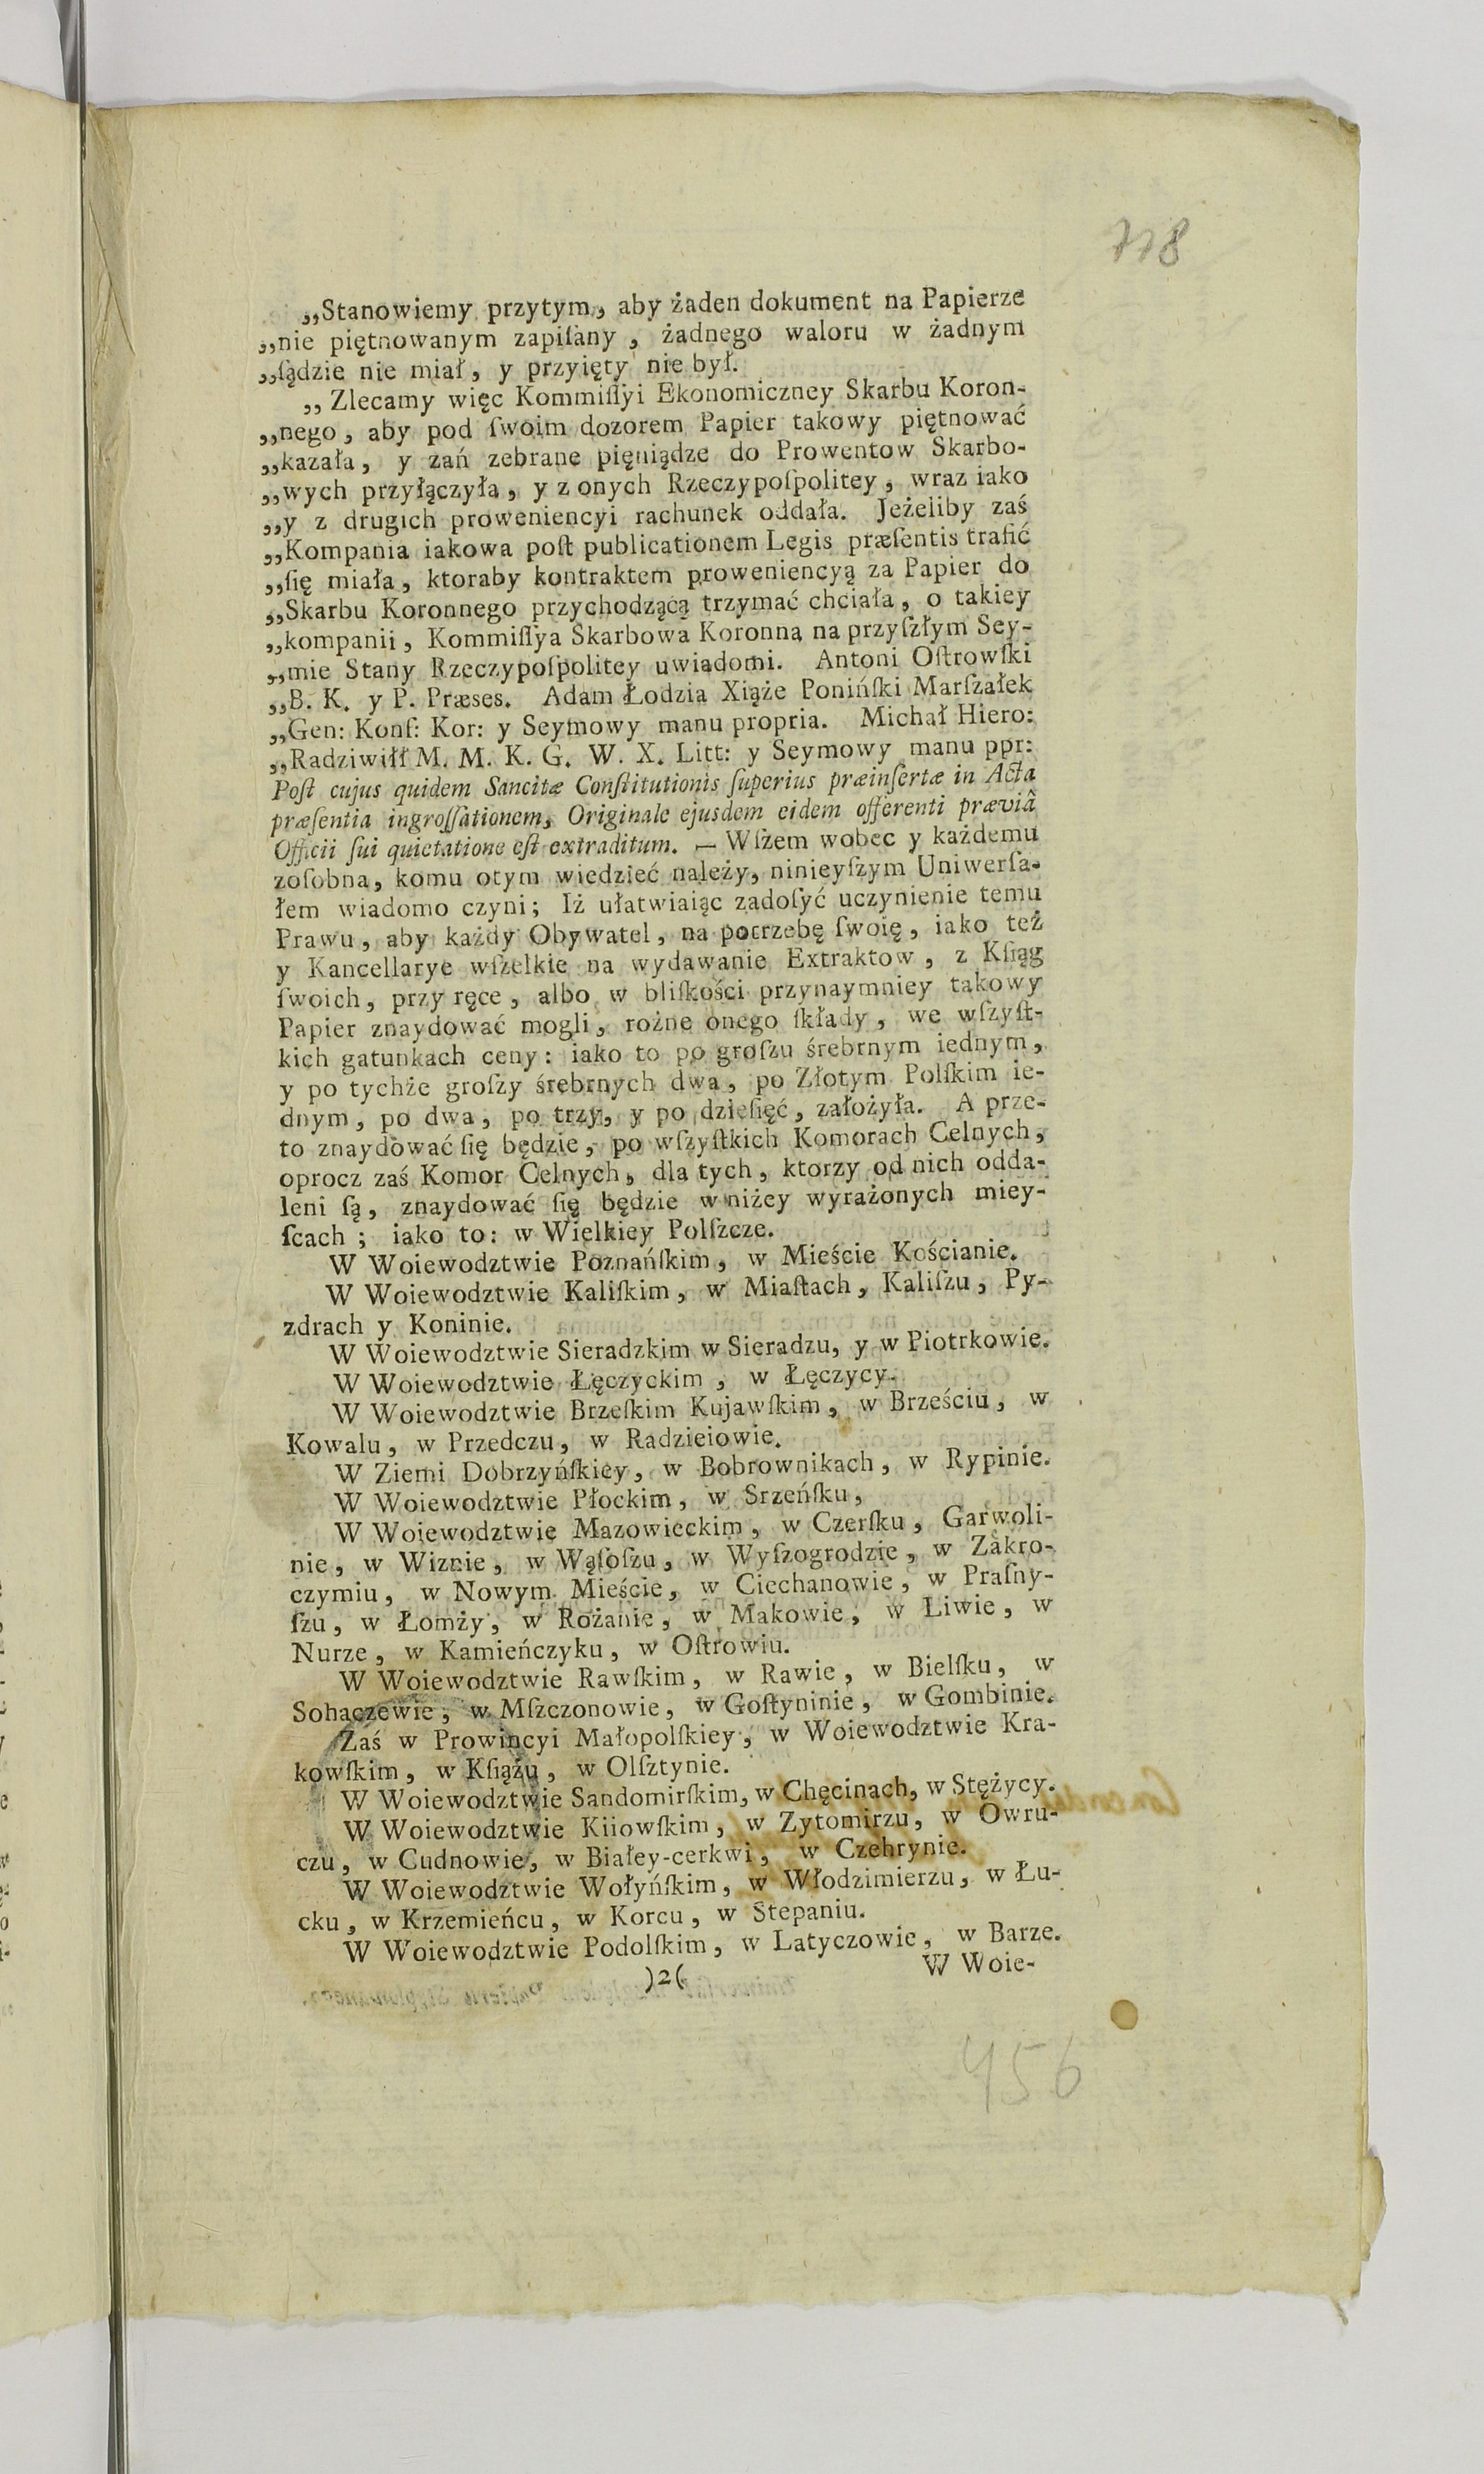 778
„Stanowiemy przytym, aby żaden dokument na Papierze
„nie piętnowanym zapiſany, żadnego waloru w żadnym
„ſądzie nie miał, y przyięty nie był.
„Zlecamy więc Kommiſſyi Ekonomiczney Skarbu Koron-
„nego, aby pod ſwoim dozorem Papier takowy piętnować
„kazała, y zań zebrane pięniądze do Prowentow Skarbo-
„wych przyłączyła, y z onych Rzeczypoſpolitey, wraz iako
„y z drugich proweniencyi rachunek oddała. Jeżeliby zaś
„Kompania iakowa poſt publicationem Legis præſentis trafić
„ſię miała, ktoraby kontraktem proweniencyą za Papier do
„Skarbu Koronnego przychodzącą trzymać chciała, o takiey
„kompanii, Kommiſſya Skarbowa Koronna na przyſzłym Sey-
„mie Stany Rzeczypoſpolitey uwiadomi. Antoni Oſtrowſki
„B. K. y P. Præses. Adam Łodzia Xiąże Ponińſki Marſzałek
„Gen: Konf: Kor: y Seymowy manu propria. Michał Hiero:
„Radziwiłł M. M. K. G. W. X. Litt: y Seymowy manu ppr:
Poſt cujus quidem Sancitæ Conſtitutionis ſuperius præinſertæ in Acta
præſentia ingroſſationem, Originale ejusdem eidem offerenti præviâ
Officii ſui quietatione eſt extraditum. — Wſzem wobec y każdemu
zoſobna, komu otym wiedzieć należy, ninieyſzym Uniwerſa-
łem wiadomo czyni; Iż ułatwiaiąc zadoſyć uczynienie temu
Prawu, aby każdy Obywatel, na potrzebę ſwoię, iako też
y Kancellarye wſzelkie na wydawanie Extraktow, z Kſiąg
ſwoich, przy ręce, albo w bliſkości przynaymniey takowy
Papier znaydować mogli, rożne onego ſkłady, we wſzyſt-
kich gatunkach ceny: iako to po groſzu śrebrnym iednym,
y po tychże groſzy śrebrnych dwa, po Złotym Polſkim ie-
dnym, po dwa, po trzy, y po dzieſięć, założyła. A prze-
to znaydować ſię będzie, po wſzyſtkich Komorach Celnych,
oprocz zaś Komor Celnych, dla tych, ktorzy od nich odda-
leni ſą, znaydować ſię będzie w niżey wyrażonych miey-
ſcach; iako to: w Wielkiey Polſzcze.
W Woiewodztwie Poznańſkim, w Mieście Kościanie.
W Woiewodztwie Kaliſkim, w Miaſtach, Kaliſzu, Py-
zdrach y Koninie.
W Woiewodztwie Sieradzkim w Sieradzu, y w Piotrkowie.
W Woiewodztwie Łęczyckim, w Łęczycy.
W Woiewodztwie Brzeſkim Kujawſkim, w Brześciu, w
Kowalu, w Przedczu, w Radzieiowie.
W Ziemi Dobrzyńſkiey, w Bobrownikach, w Rypinie.
W Woiewodztwie Płockim, w Srzeńſku,
W Woiewodztwie Mazowieckim, w Czerſku, Garwoli-
nie, w Wiznie, w Wąſoſzu, w Wyſzogrodzie, w Zakro-
czymiu, w Nowym Mieście, w Ciechanowie, w Praſny-
ſzu, w Łomży, w Rożanie, w Makowie, w Liwie, w
Nurze, w Kamieńczyku, w Oſtrowiu.
W Woiewodztwie Rawſkim, w Rawie, w Bielſku, w
Sohaczewie, w Mſzczonowie, w Goſtyninie, w Gombinie.
Zaś w Prowincyi Małopolſkiey, w Woiewodztwie Kra-
kowſkim, w Kſiążu, w Olſztynie.
W Woiewodztwie Sandomirſkim, w Chęcinach, w Stężycy.
W Woiewodztwie Kiiowſkim, w Zytomirzu, w Owru-
czu, w Cudnowie, w Białey-cerkwi, w Czehrynie.
W Woiewodztwie Wołyńſkim, w Włodzimierzu, w Łu-
cku, w Krzemieńcu, w Korcu, w Stepaniu.
W Woiewodztwie Podolſkim, w Latyczowie, w Barze.
)2(
W Woie-
456